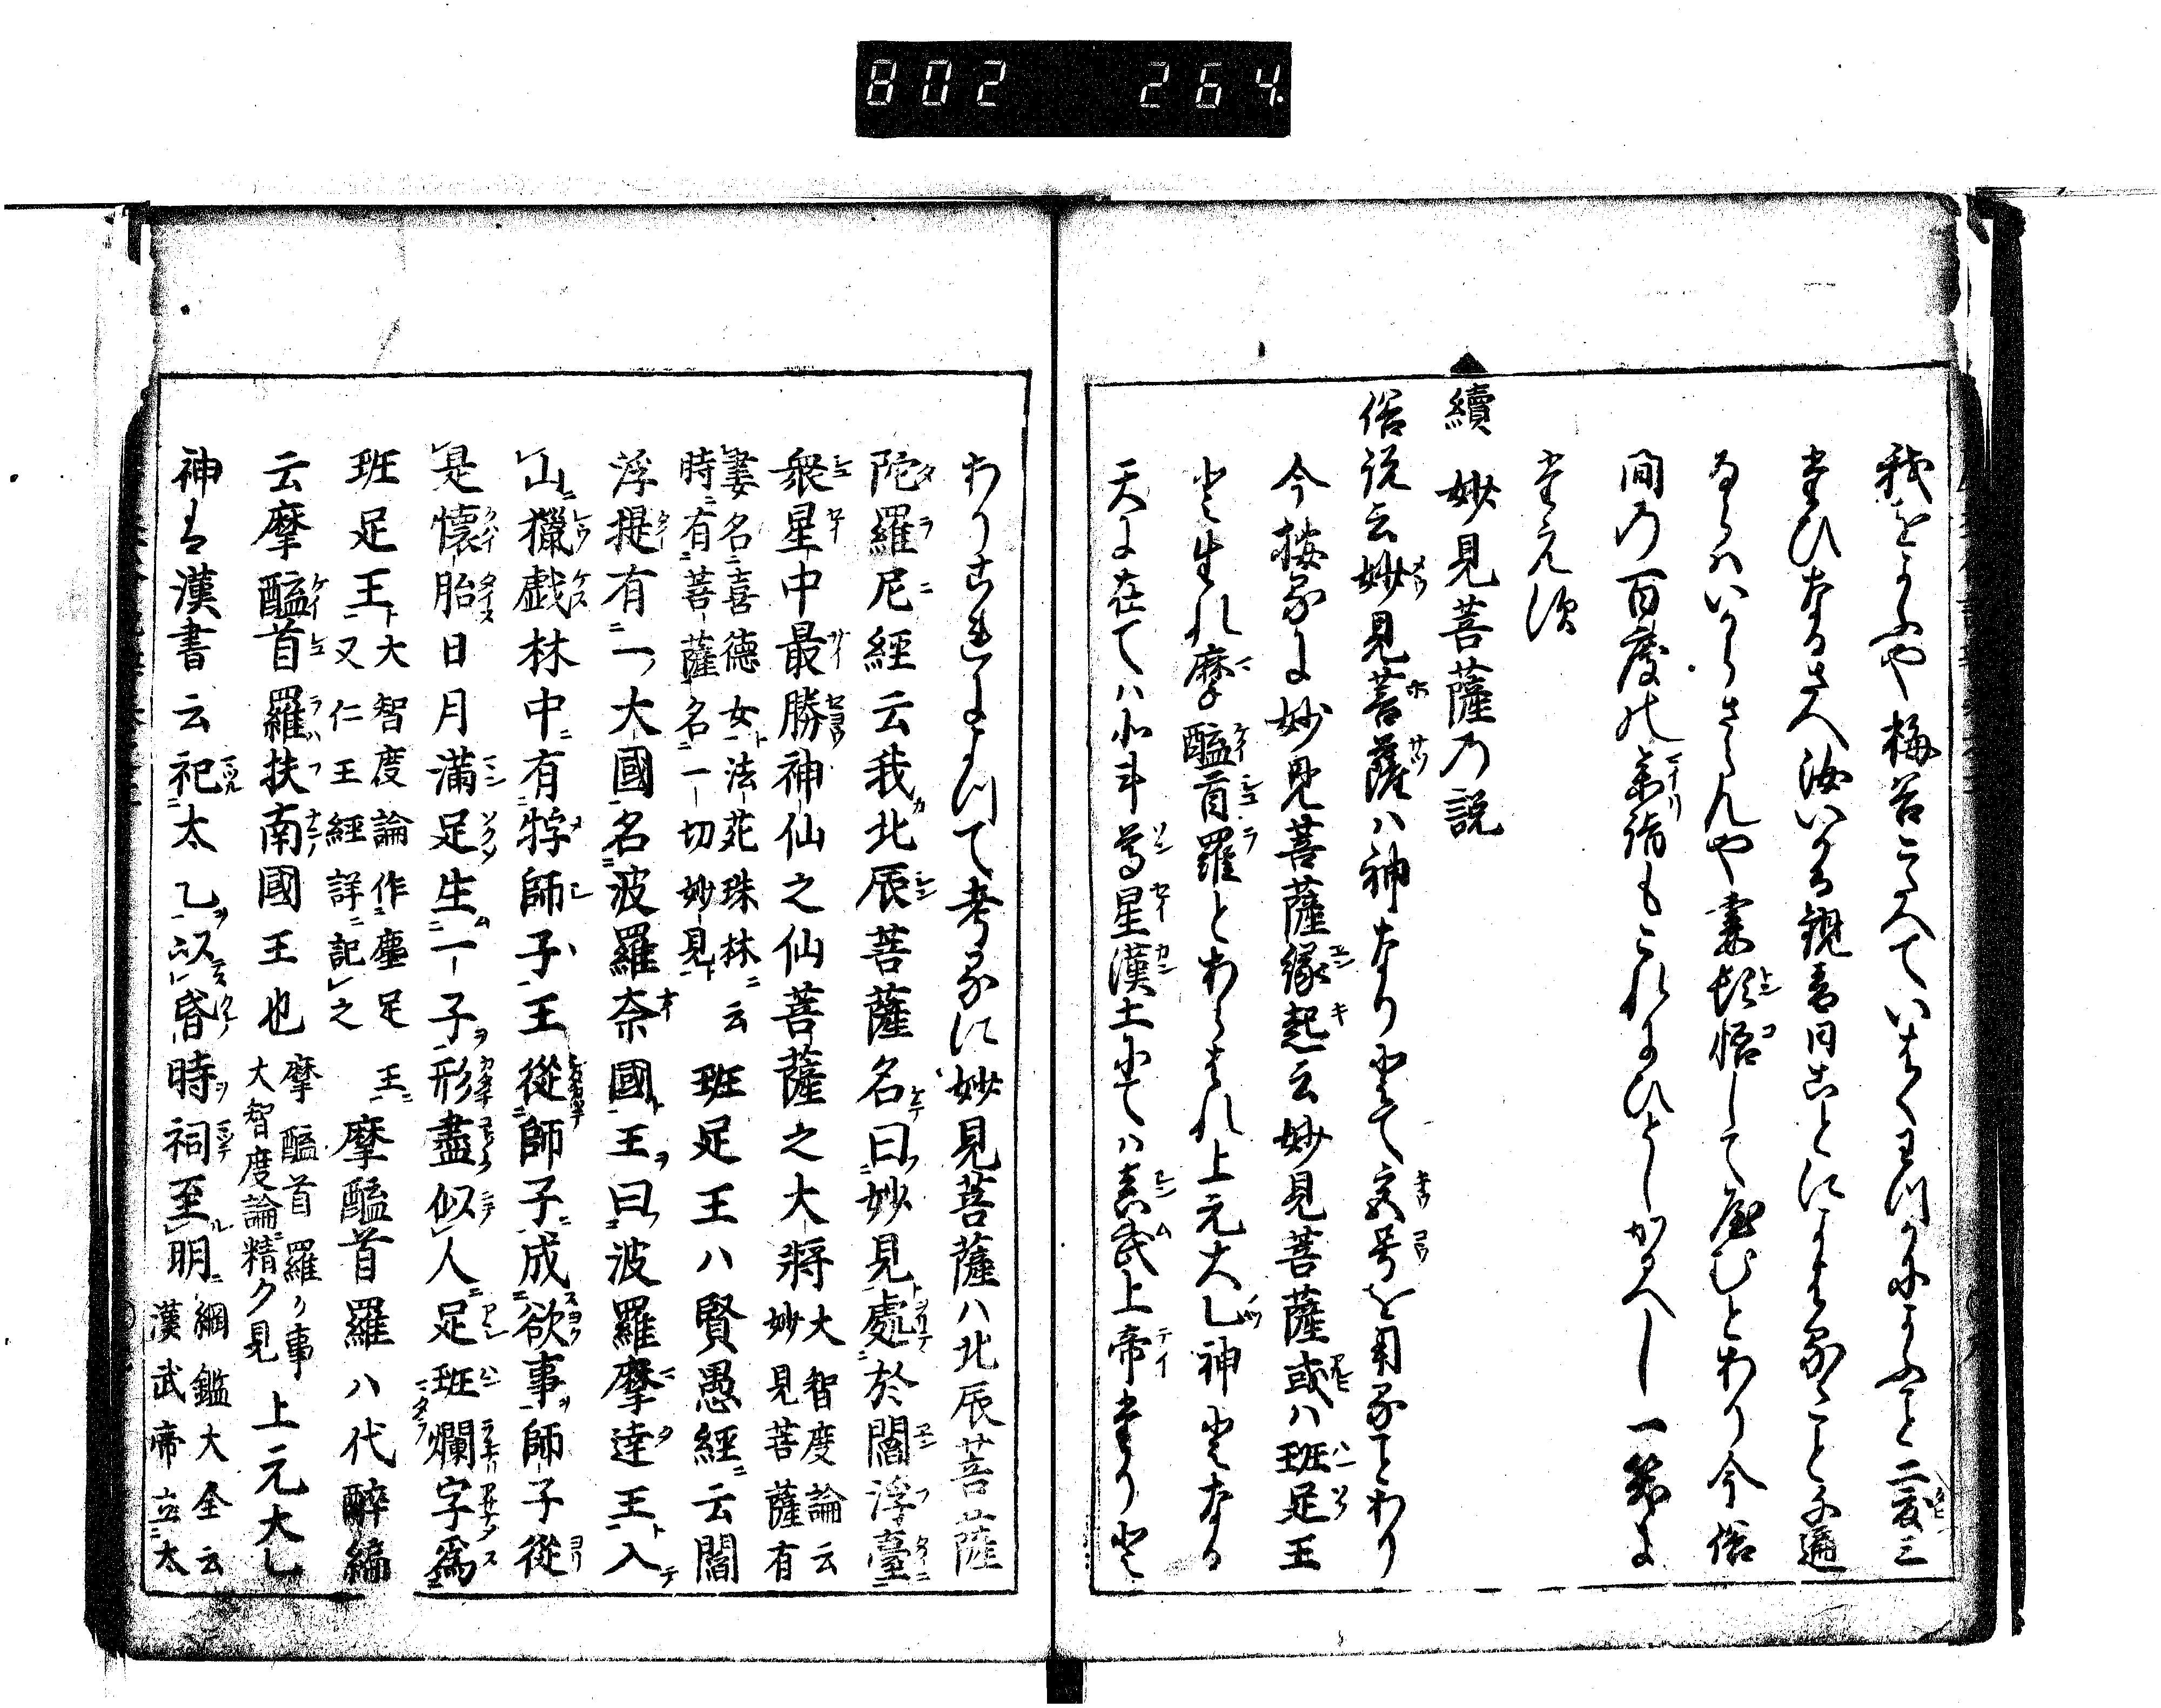 802 264
我をよふや梅答こたへていはくわつかによふこと二度三
たひなるさへ汝いかる観音日ことによはるゝこと千遍
ならはいからさらんや妻頓悟して屈むとあり今俗
間の百度の参詣もこれにひとしかるへし一笑に
たえす
續 妙見菩薩の説
俗説云妙見菩薩ハ神なりとて社号を用ることあり
今按るに妙見菩薩縁起云妙見菩薩或ハ班足王
と生れ摩醯首羅とあらはれ上元大乙神となる
天に在てハ北斗尊星漢土にてハ真武上帝たりと
ありこれによつて考るに妙見菩薩ハ北辰菩薩
陀羅尼經云我北辰菩薩名曰妙見處於閻浮臺
衆星中最勝神仙之仙菩薩之大將大智度論云妙見菩薩有
妻名喜德女法苑珠林云時有菩薩名一切妙見 班足王ハ賢愚經云閻
浮提有一大國名波羅奈國王曰波羅摩達王入
山獵戯林中有牸師子王從師子成欲事師子從
是懷胎日月滿足生一子形盡似人足班爛字爲
班足王大智度論作塵足王又仁王經詳記之 摩醯首羅ハ代醉編
云摩醯首羅扶南國王也摩醯首羅ノ事大智度論精ク見 上元大乙
神は漢書云祀太乙以昏時祠至明綱鑑大全云漢武帝立太